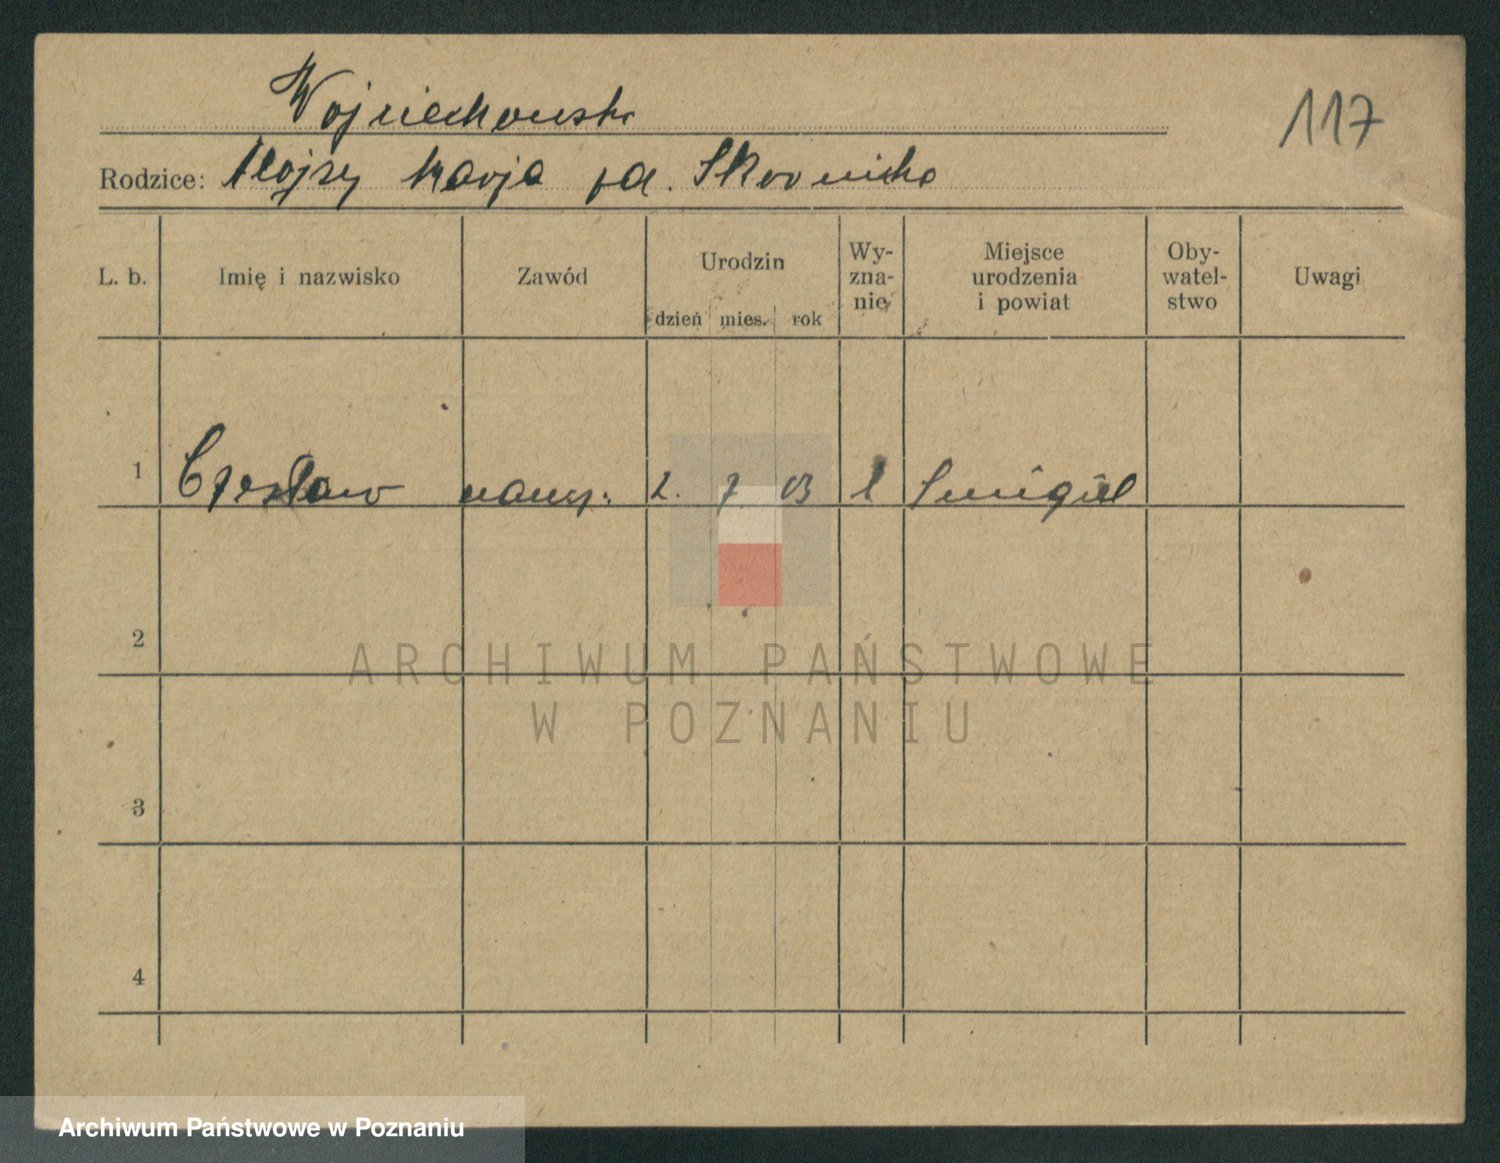 Wojciechowski
117
Rodzice: Alojzy Marja
L. b. Imię i nazwisko Zawód Urodzin dzień mies. rok Wy-znanie Miejsce urodzenia i powiat Oby-watel-stwo Uwagi
1 Czesław naucz. 2. 7 03 Smigiel
2
ARCHIWUM PAŃSTWOWE
W POZNANIU
3
4
Archiwum Państwowe w Poznaniu